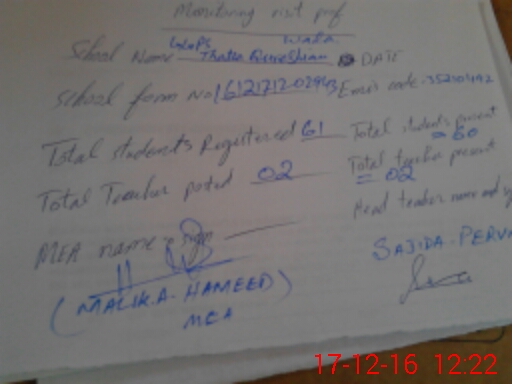 Monitoring visit prof
School Name GGPS Thatta Qureshian Wala DATE
School form No 1612171202943 Emis code = 35210492
Total students Registered 61 Total students present = 60
Total Teacher posted 02 Total teacher present = 02
MEA name & sign Head teacher name and
(MALIKA. HAMEED) SAJIDA. PERVA
MEA
17-12-16 12:22